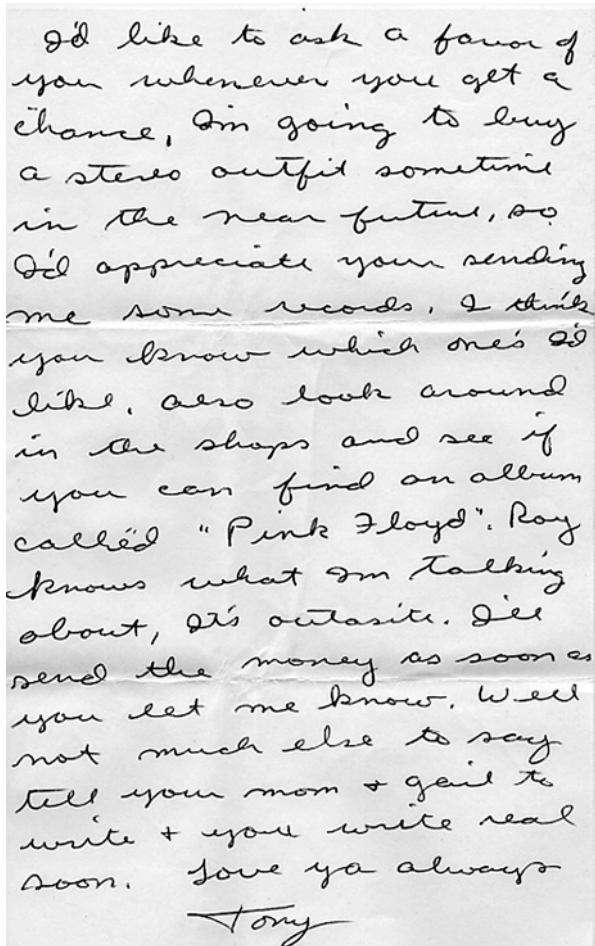 I'd like to ask a favor of
you whenever you get a
chance, Im going to buy
a stereo outfit sometime
in the near future, so
I'd appreciate your sending
me some records. I think
you know which one's I'd
like. also look around
in the shops and see if
you can find an album
called "Pink Floyd". Roy
knows what Im talking
about, It's outasite. I'll
send the money as soon as
you let me know. Well
not much else to say
tell your mom + gail to
write + you write real
soon. Love ya always
Tony